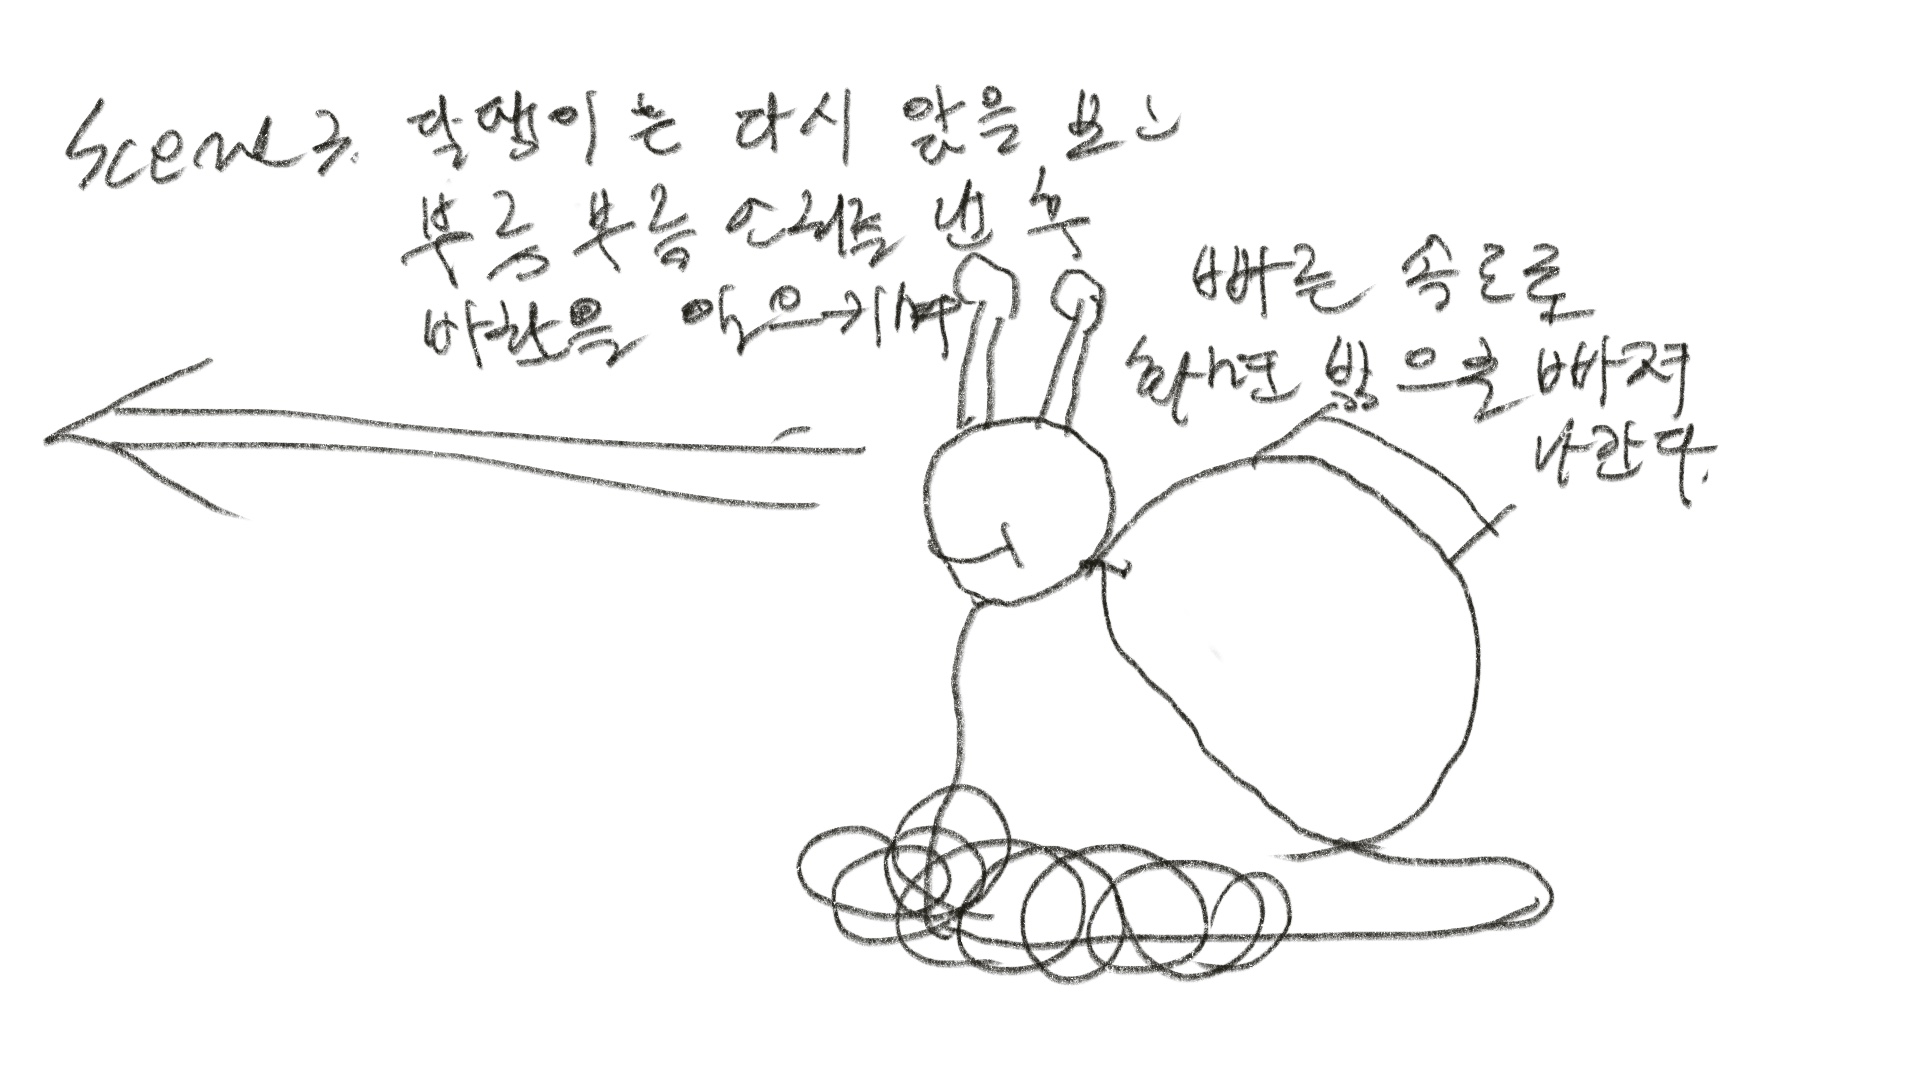 Scene 3. 달팽이는 다시 앞을 보고
부릉부릉 소리를 낸 후
바퀸을 역으키며
빠른 속도로
화면 밖으로 빠져
나간다.